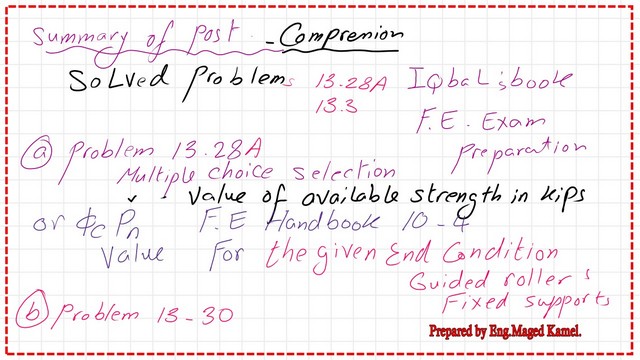 Summary of Post - Compremion
Solved Problems 13.28A IqbaL's book
13.3 F.E. Exam
Preparation
(a) Problem 13.28A
Multiple choice selection
Value of available strength in kips
or ϕc Pn F.E Handbook 10-4
Value For the given End Condition
Guided roller s
Fixed supports
(b) Problem 13-30
Prepared by Eng.Maged Kamel.